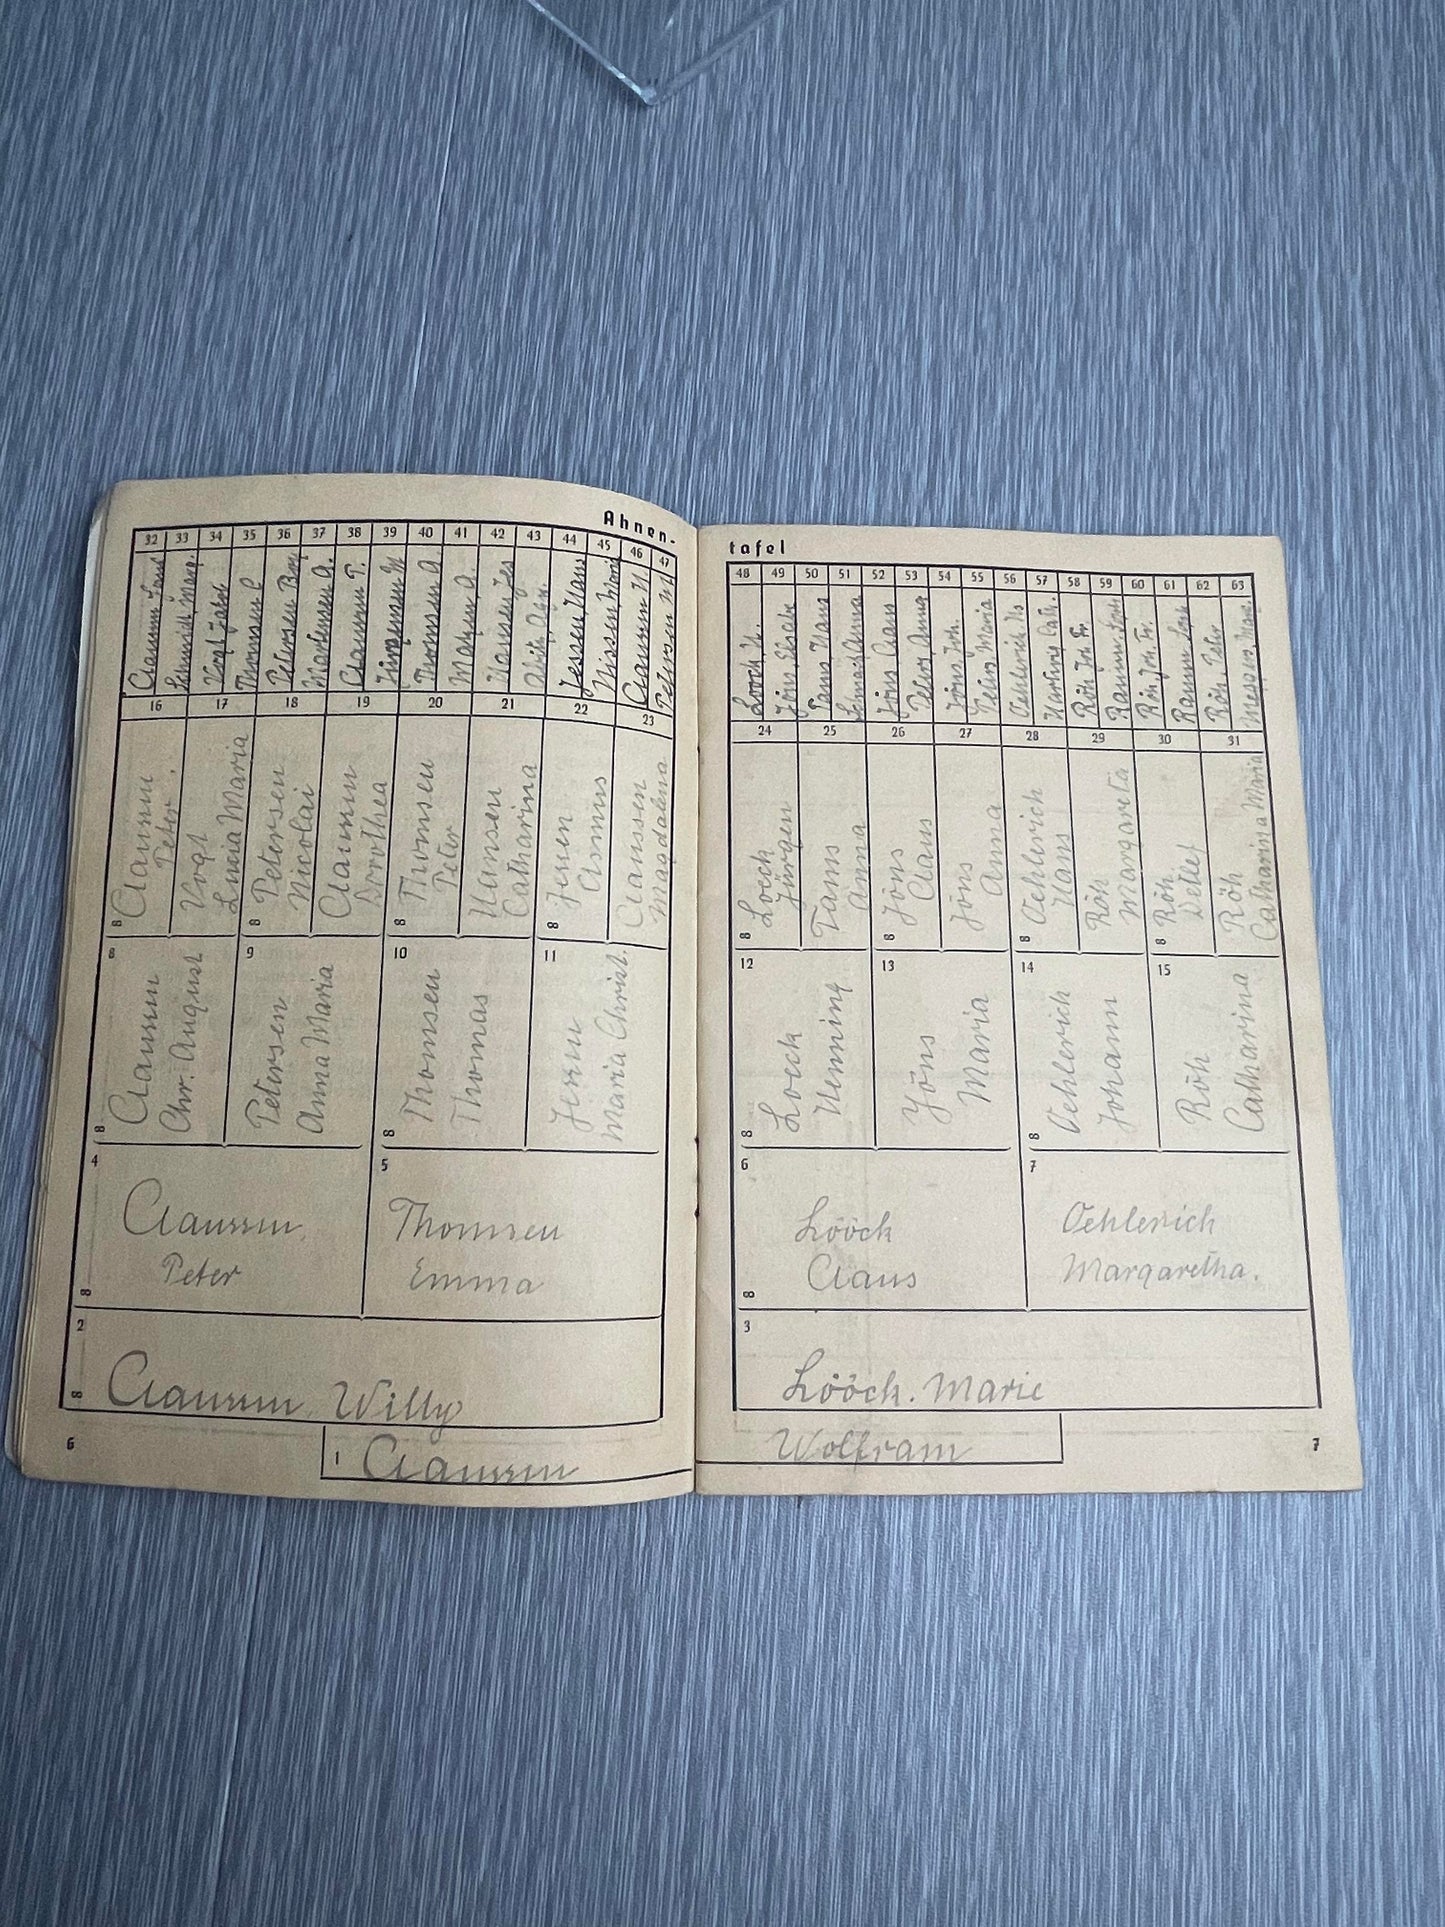 Ahnen-
32 33 34 35 36 37 38 39 40 41 42 43 44 45 46 47
Schmidt, Marg.
Vogt
Thomsen
Petersen Boy
Martensen A.
Thomsen A.
Matzen A.
Hansen
Jessen, Hans
Nissen
Petersen
16 17 18 19 20 21 22 23
Peter.
Vogt
Lucia Maria
Petersen
Nicolai
Dorothea
Thomsen
Peter
Hansen
Catharina
Jessen
Asmus
Claussen
Magdalena
8 8 8 8
8 9 10 11
Claussen
Chr. August
Petersen
Anna Maria
Thomsen
Thomas
Jessen
Maria Christ.
8 8
4 5
Claussen
Peter
Thomsen
Emma
8
2
Claussen Willy
8
6
1 Claussen
tafel
48 49 50 51 52 53 54 55 56 57 58 59 60 61 62 63
Loock H.
Jöns
Tams Hans
Anna
Jöns Claus
Peters Anna
Jöns Joh.
Peters Maria
Oehlerich Hs
Röh Joh Fr.
Röh Joh. Fr.
Röh. Peter
24 25 26 27 28 29 30 31
Loock
Jürgen
Tams
Anna
Jöns
Claus
Jöns
Anna
Oehlerich
Hans
Röh
Margareta
Röh
Detlef
Röh
Catharina Maria
8 8 8 8
12 13 14 15
Loock
Henning
Jöns
Maria
Oehlerich
Johann
Röh
Catharina
8 8
6 7
Lööck
Claus
Oehlerich
Margaretha.
8
3
Lööck. Marie
Wolfram
7